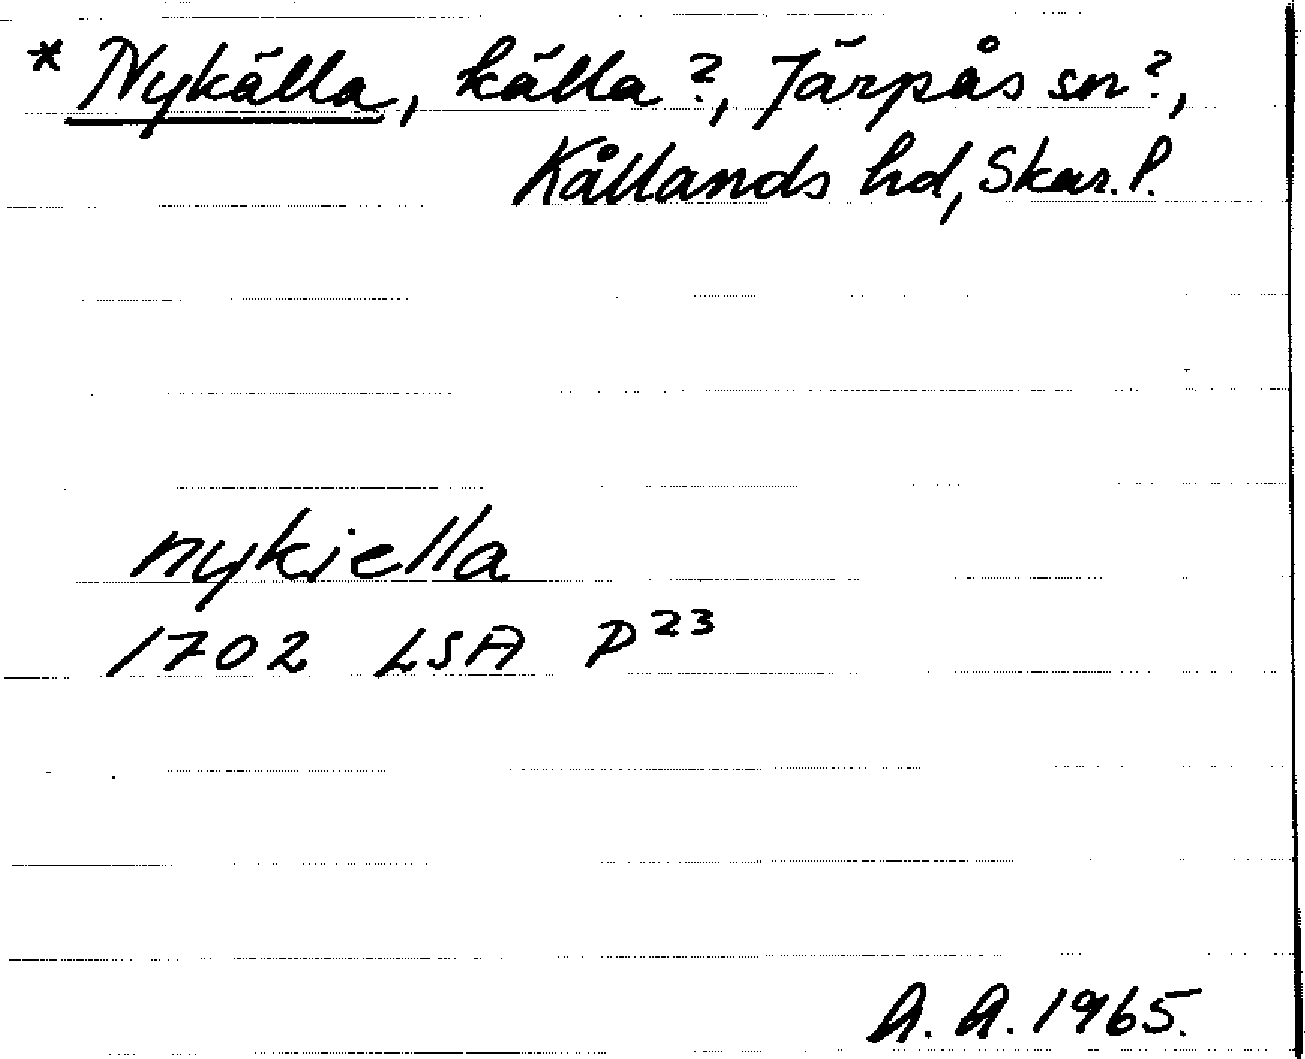 * Nykälla, källa?, Järpås sn?,
Kållands hd, Skar. l.
nykiella
1702 LSA P23
A. A. 1965.